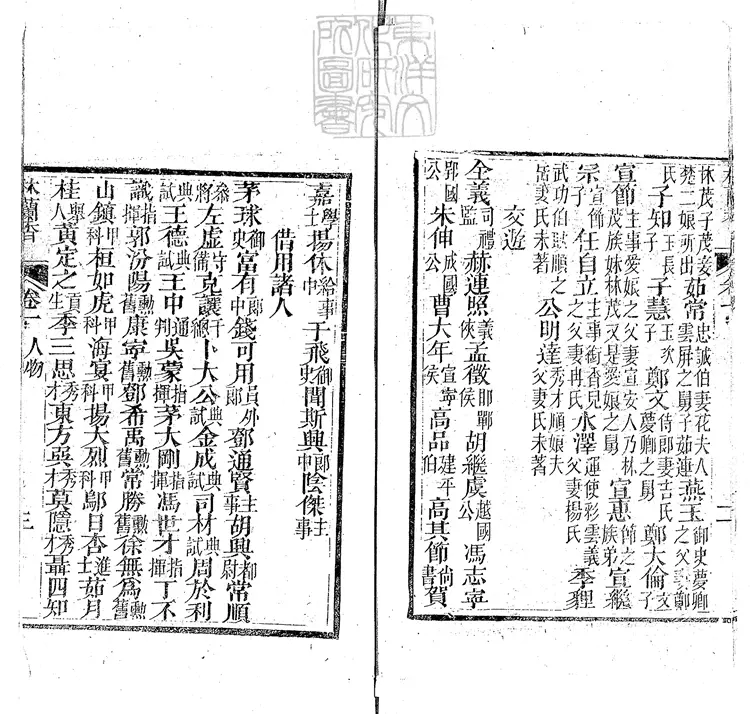 林茂子茂妾楚二娘所出 茹常忠誠伯妻花夫人雲屏之舅子茹連 燕玉御史夢卿之父妻鄭
氏 子知玉長子 子慧玉次子 鄭文侍郎妻吉氏夢卿之舅 鄭大倫文子
宣節主事愛娘之父妻宣安人乃林茂族妹林茂又是愛娘之舅 宣惠節之族弟 宣繼
宗宣節子 任自立主事銜香兒之父妻冉氏 水澤運使彩雲義父妻楊氏 季貍
武功伯順之岳妻氏未著 公明達秀才順娘之父妻氏未著
交遊
全義司禮監 赫連照義俠 孟徵邯鄲侯 胡繼虞越國公 馮志寧
郢國公 朱伸成國公 曹大年宣寧侯 高品建平伯 高其節尚書 賀
二
嘉學士 揚休給事中 于飛御史 聞斯興郎中 陰傑主事
借用諸人
茅球御史 富有郎中 錢可用員外郎 鄧通賢主事 胡興都尉 常順
參將 左虛守備 克讓千總 卜大公典試 金成典試 司材典試 周於利
典試 王德典試 王中通判 吳蒙指揮 茅大剛指揮 馮世才指揮 丁不
識指揮 郭汾陽勳舊 康寧勳舊 鄧希禹勳舊 常勝勳舊 徐無為勳舊
山鎮甲科 桓如虎甲科 海宴甲科 揚大烈甲科 鄔日杏進士 茹月
桂舉人 黃定之貢生 季三思秀才 東方吳秀才 莫隱秀才 聶四知
林蘭香 卷一 人物 三
東洋文化研究所圖書